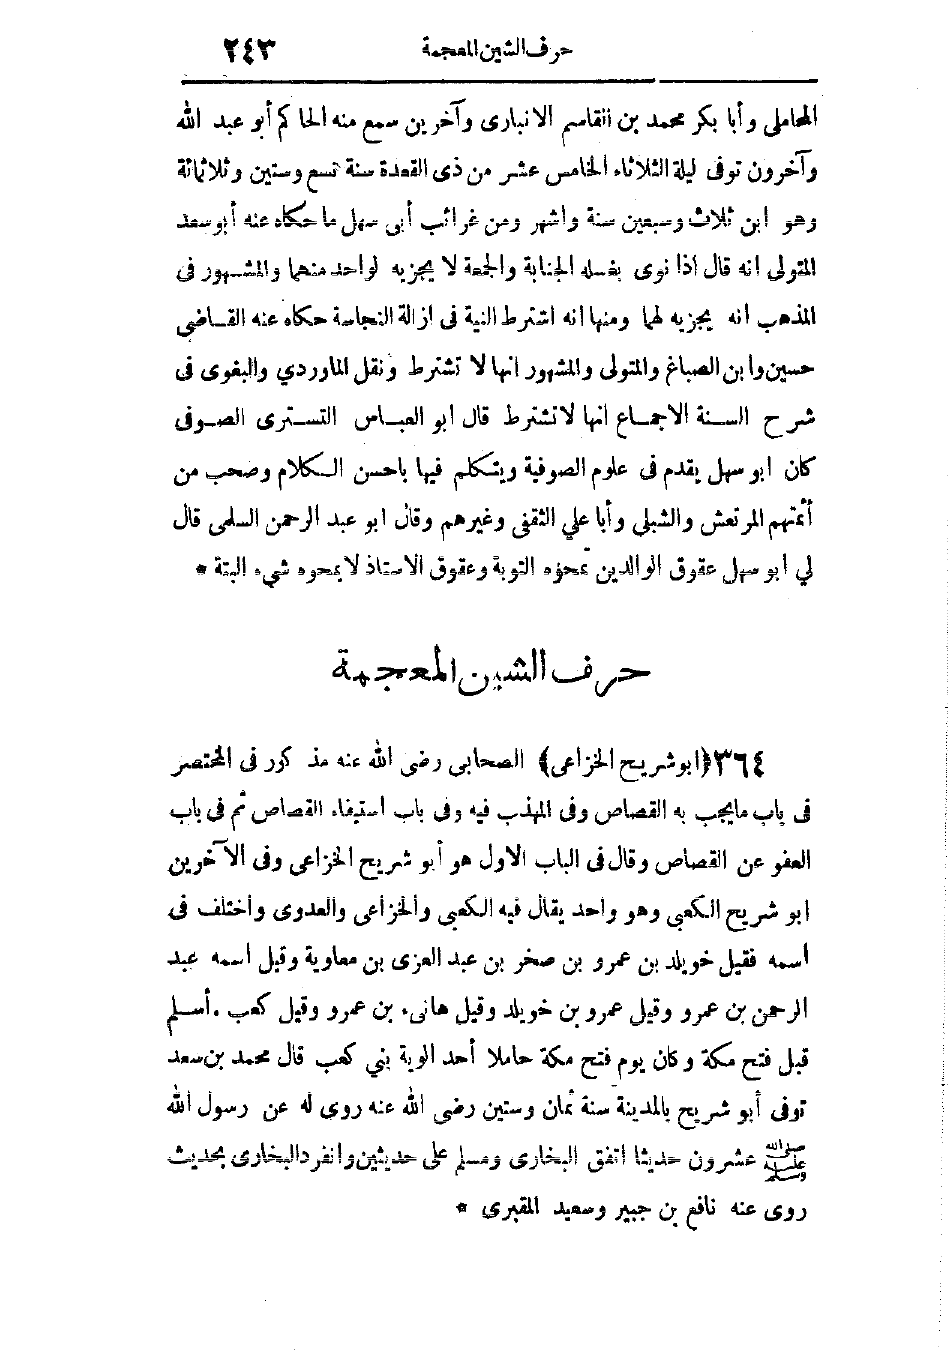 حرف الشين المعجمة ٢٤٣
المحاملي وأبا بكر محمد بن القاسم الانبارى وآخرين سمع منه الحاكم أبو عبد الله
وآخرون توفى ليلة الثلاثاء الخامس عشر من ذى القعدة سنة تسع وستين وثلاثمائة
وهو ابن ثلاث وسبعين سنة واشهر ومن غرائب أبى سهل ما حكاه عنه أبو سعد
المتولى انه قال اذا نوى بغسله الجنابة والجمعة لا يجزيه لواحد منهما والمشهور فى
المذهب انه يجزيه لهما ومنها انه اشترط النية فى ازالة النجاسة حكاه عنه القاضي
حسين وابن الصباغ والمتولى والمشهور انها لا تشترط ونقل الماوردي والبغوى فى
شرح السنة الاجماع انها لا تشترط قال ابو العباس التسترى الصوفى
كان ابو سهل يقدم فى علوم الصوفية ويتكلم فيها باحسن الكلام وصحب من
أئمتهم المرتعش والشبلى وأبا علي الثقفى وغيرهم وقال ابو عبد الرحمن السلمى قال
لي ابو سهل عقوق الوالدين تمحوه التوبة وعقوق الاستاذ لا يمحوه شيء البتة *
حرف الشين المعجمة
٣٦٤ (ابو شريح الخزاعى) الصحابى رضى الله عنه مذكور فى المختصر
فى باب ما يجب به القصاص وفى المهذب فيه وفى باب استيفاء القصاص ثم فى باب
العفو عن القصاص وقال فى الباب الاول هو أبو شريح الخزاعى وفى الآخرين
ابو شريح الكعبي وهو واحد يقال فيه الكعبي والخزاعى والعدوى واختلف فى
اسمه فقيل خويلد بن عمرو بن صخر بن عبد العزى بن معاوية وقيل اسمه عبد
الرحمن بن عمرو وقيل عمرو بن خويلد وقيل هانىء بن عمرو وقيل كعب . أسلم
قبل فتح مكة وكان يوم فتح مكة حاملا أحد الوية بني كعب قال محمد بن سعد
توفى أبو شريح بالمدينة سنة ثمان وستين رضى الله عنه روى له عن رسول الله
ﷺ عشرون حديثا اتفق البخارى ومسلم على حديثين وانفرد البخارى بحديث
روى عنه نافع بن جبير وسعيد المقبرى *